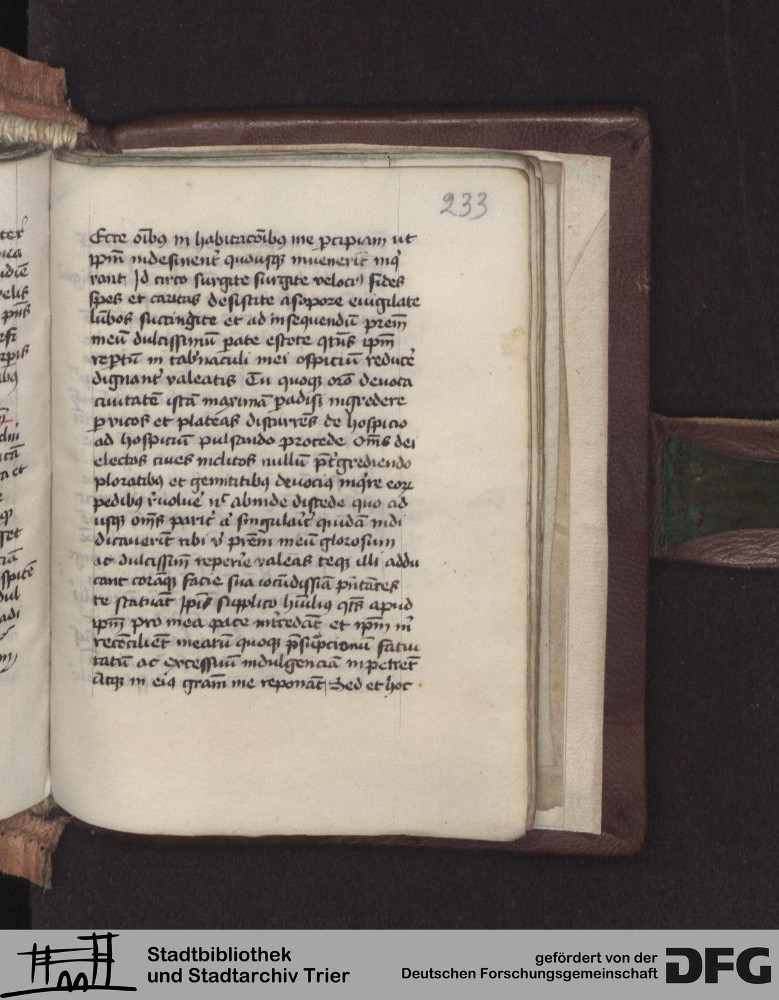 233
Ecce oībꝰ in habitacōībꝰ me ꝑcipiam ut
ip̄m indesinent̓ quousqꝫ inuenerit inq̓
rant Id circo surgite surgite veloci fides
spes et caritas desistite a sopore euigilate
lūbos succingite et ad insequendū pr̄em̄
meū dulcissimū ꝑate estote qtn̄s ip̄m
reꝑtū in tab̓naculi mei ospiciū reduce̓
dignant̓ valeatis Tu quoqꝫ orō deuota
ciuitatē istā maximā ꝑadisi ingredere
ꝑ vicos et plateas discurrēs de hospicio
ad hospiciū pulsando procede Om̄s dei
electos ciues inclitos nullū p̄t̓grediendo
ploratibꝰ et gemitibꝰ deuociꝰ inq̓re eoꝝ
pedibꝰ ꝓuolue̓ nc̄ abinde discede quo ad
usqꝫ om̄s parit̓ a̓ singulait̓ quidā indi
dicauerīt tibi v̓ pr̄em̄ meū gloriosum
ac dulcissim̄ reperire valeas teqꝫ illi addu
cant corāqꝫ facie sua iocūdissīa p̄ntātes
te statuāt Ip̄is supplico hūiliꝰ qt̄s apud
ip̄m pro mea pace intcedāt et ip̄m m̓
recōcilient meatū quoqꝫ p̄sūpcionū fatui
tatū ac excessuū indulgenciā inpetrēt
Atqꝫ in eiꝰ gram̄ me reponāt Sed et hoc
Stadtbibliothek
und Stadtarchiv Trier
gefördert von der
Deutschen Forschungsgemeinschaft
DFG